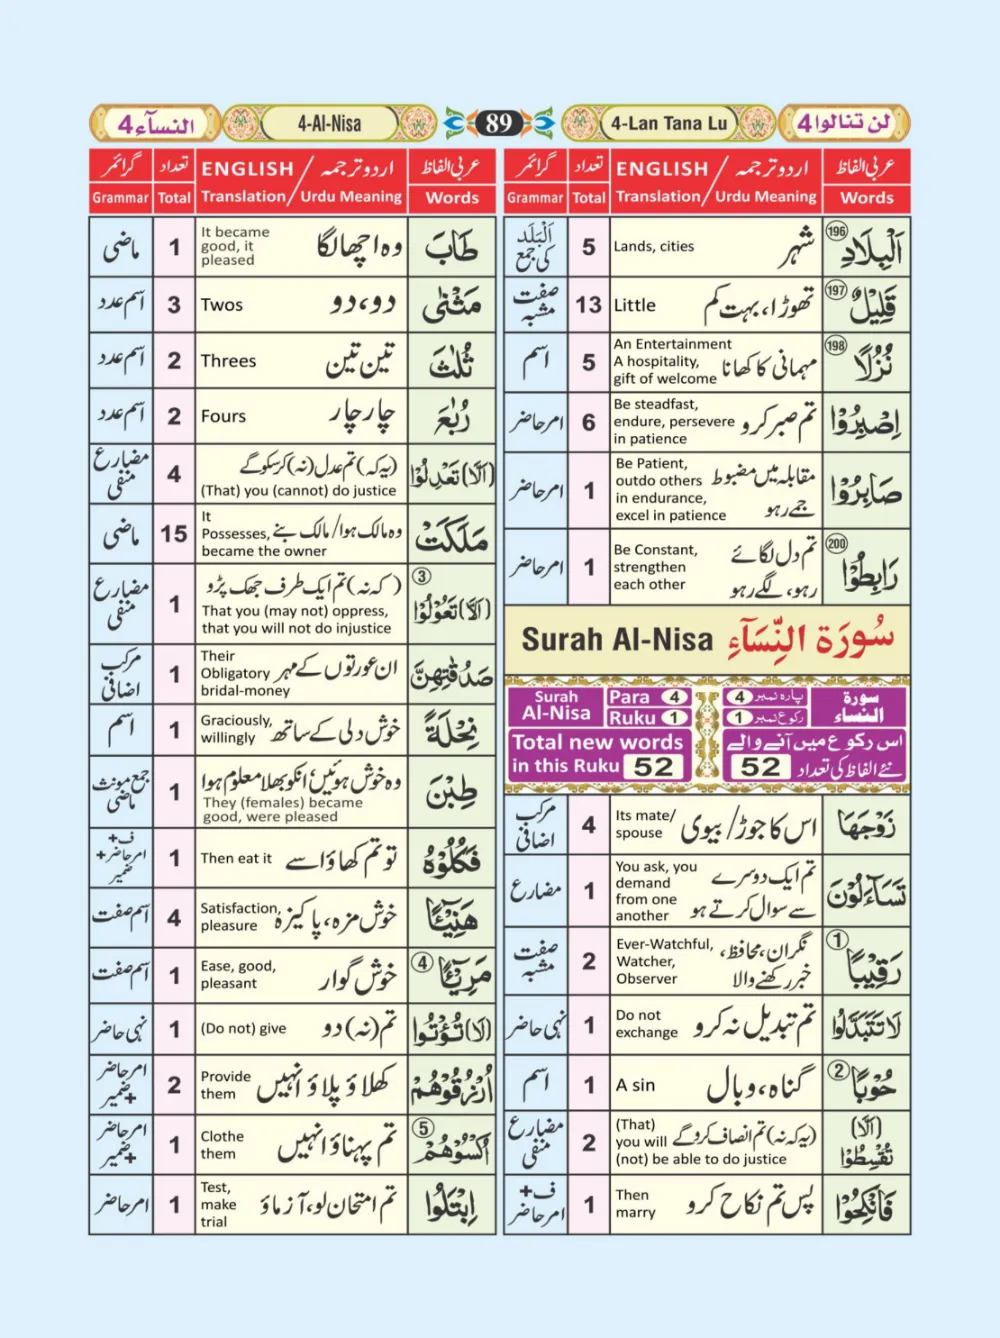 لن تنالوا 4
4-Lan Tana Lu
89
4-Al-Nisa
النسآء 4
عربی الفاظ
اردو ترجمہ / ENGLISH
تعداد
گرائمر
Words
Urdu Meaning / Translation
Total
Grammar
196
اَلْبِلَادِ
شہر
Lands, cities
5
اَلْبَلَد
کی جمع
197
قَلِيْلٌ
تھوڑا، بہت کم
Little
13
صفت
مشبہ
198
نُزُلًا
مہمانی کا کھانا
An Entertainment
A hospitality,
gift of welcome
5
اسم
اِصْبِرُوْا
تم صبر کرو
Be steadfast,
endure, persevere
in patience
6
امر حاضر
صَابِرُوْا
مقابلہ میں مضبوط
جمے رہو
Be Patient,
outdo others
in endurance,
excel in patience
1
امر حاضر
200
رَابِطُوْا
تم دل لگائے
رہو، لگے رہو
Be Constant,
strengthen
each other
1
امر حاضر
Surah Al-Nisa سُوْرَة النِّسَآءِ
سورة
النساء
پارہ نمبر 4
رکوع نمبر 1
Para 4
Ruku 1
Surah
Al-Nisa
اس رکوع میں آنے والے
نئے الفاظ کی تعداد 52
Total new words
in this Ruku 52
زَوْجَهَا
اس کا جوڑ/ بیوی
Its mate/
spouse
4
مرکب
اضافی
تَسَآءَلُوْنَ
تم ایک دوسرے
سے سوال کرتے ہو
You ask, you
demand
from one
another
1
مضارع
1
رَقِيْبًا
نگران، محافظ،
خبر رکھنے والا
Ever-Watchful,
Watcher,
Observer
2
صفت
مشبہ
لَا تَتَبَدَّلُوا
تم تبدیل نہ کرو
Do not
exchange
1
نہی حاضر
2
حُوْبًا
گناہ، وبال
A sin
1
اسم
(اَلَّا)
تُقْسِطُوْا
(یہ کہ نہ) تم انصاف کرو گے
(That)
you will
(not) be able to do justice
2
مضارع
منفی
فَانْكِحُوْا
پس تم نکاح کرو
Then
marry
1
ف+
امر حاضر
عربی الفاظ
اردو ترجمہ / ENGLISH
تعداد
گرائمر
Words
Urdu Meaning / Translation
Total
Grammar
طَابَ
وہ اچھا لگا
It became
good, it
pleased
1
ماضی
مَثْنٰى
دو، دو
Twos
3
اسم عدد
ثُلٰثَ
تین تین
Threes
2
اسم عدد
رُبٰعَ
چار چار
Fours
2
اسم عدد
(اَلَّا) تَعْدِلُوْا
(یہ کہ) تم عدل (نہ) کر سکو گے
(That) you (cannot) do justice
4
مضارع
منفی
مَلَكَتْ
وہ مالک ہوا/ مالک بنے
It
Possesses,
became the owner
15
ماضی
3
(اَلَّا) تَعُوْلُوْا
(کہ نہ) تم ایک طرف جھک پڑو
That you (may not) oppress,
that you will not do injustice
1
مضارع
منفی
صَدُقٰتِهِنَّ
ان عورتوں کے مہر
Their
Obligatory
bridal-money
1
مرکب
اضافی
نِحْلَةً
خوش دلی کے ساتھ
Graciously,
willingly
1
اسم
طِبْنَ
وہ خوش ہوئیں، انکو بھلا معلوم ہوا
They (females) became
good, were pleased
1
جمع مونث
ماضی
فَكُلُوْهُ
تو تم کھاؤ اسے
Then eat it
1
ف+
امر حاضر+
ضمیر
هَنِيْٓـًٔا
خوش مزہ، پاکیزہ
Satisfaction,
pleasure
4
اسم صفت
4
مَرِيْٓـًٔا
خوش گوار
Ease, good,
pleasant
1
اسم صفت
(لَا) تُؤْتُوا
تم (نہ) دو
(Do not) give
1
نہی حاضر
اُرْزُقُوْهُمْ
کھلاؤ پلاؤ انہیں
Provide
them
2
امر حاضر
+ضمیر
5
اُكْسُوْهُمْ
تم پہناؤ انہیں
Clothe
them
1
امر حاضر
+ضمیر
اِبْتَلُوا
تم امتحان لو، آزماؤ
Test,
make
trial
1
امر حاضر